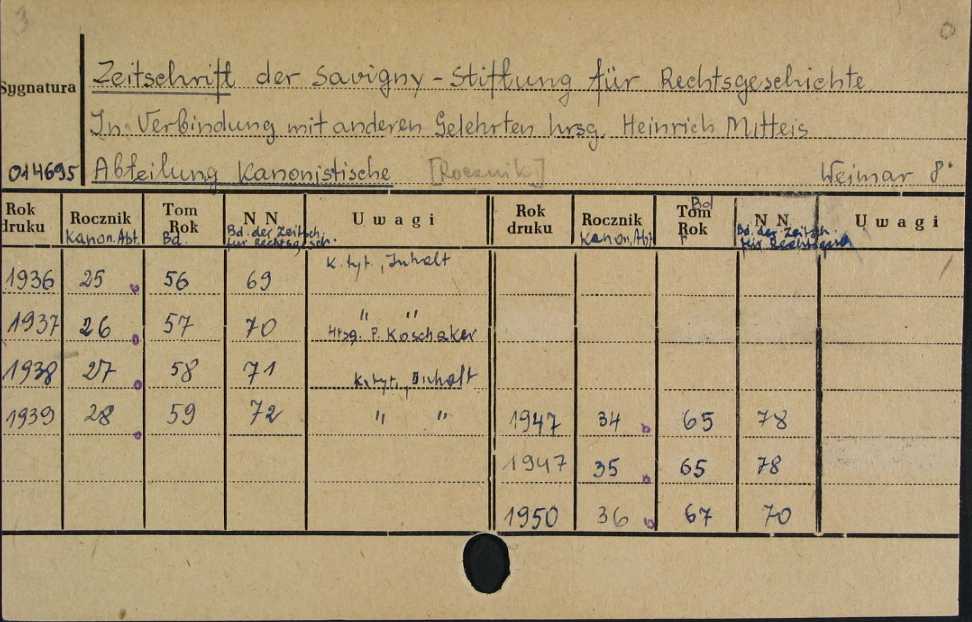 3 0
Sygnatura Zeitschrift der Savigny-Stiftung für Rechtsgeschichte
In Verbindung mit anderen Gelehrten hrsg. Heinrich Mitteis
014695 Abteilung Kanonistische [Rocznik] Weimar 8°
Rok druku Rocznik Kanon. Abt. Tom Rok Bd. N N Bd. der Zeitsch. für Rechtsgesch. Uwagi Rok druku Rocznik Kanon. Abt. Tom Rok Bd N N Bd. der Zeitsch. für Rechtsgesch Uwagi
1936 25 56 69 K. tyt., Inhalt
1937 26 57 70 " "
Hrsg. P. Koschaker
1938 27 58 71 K. tyt., Inhalt
1939 28 59 72 " " 1947 34 65 78
1947 35 65 78
1950 36 67 70